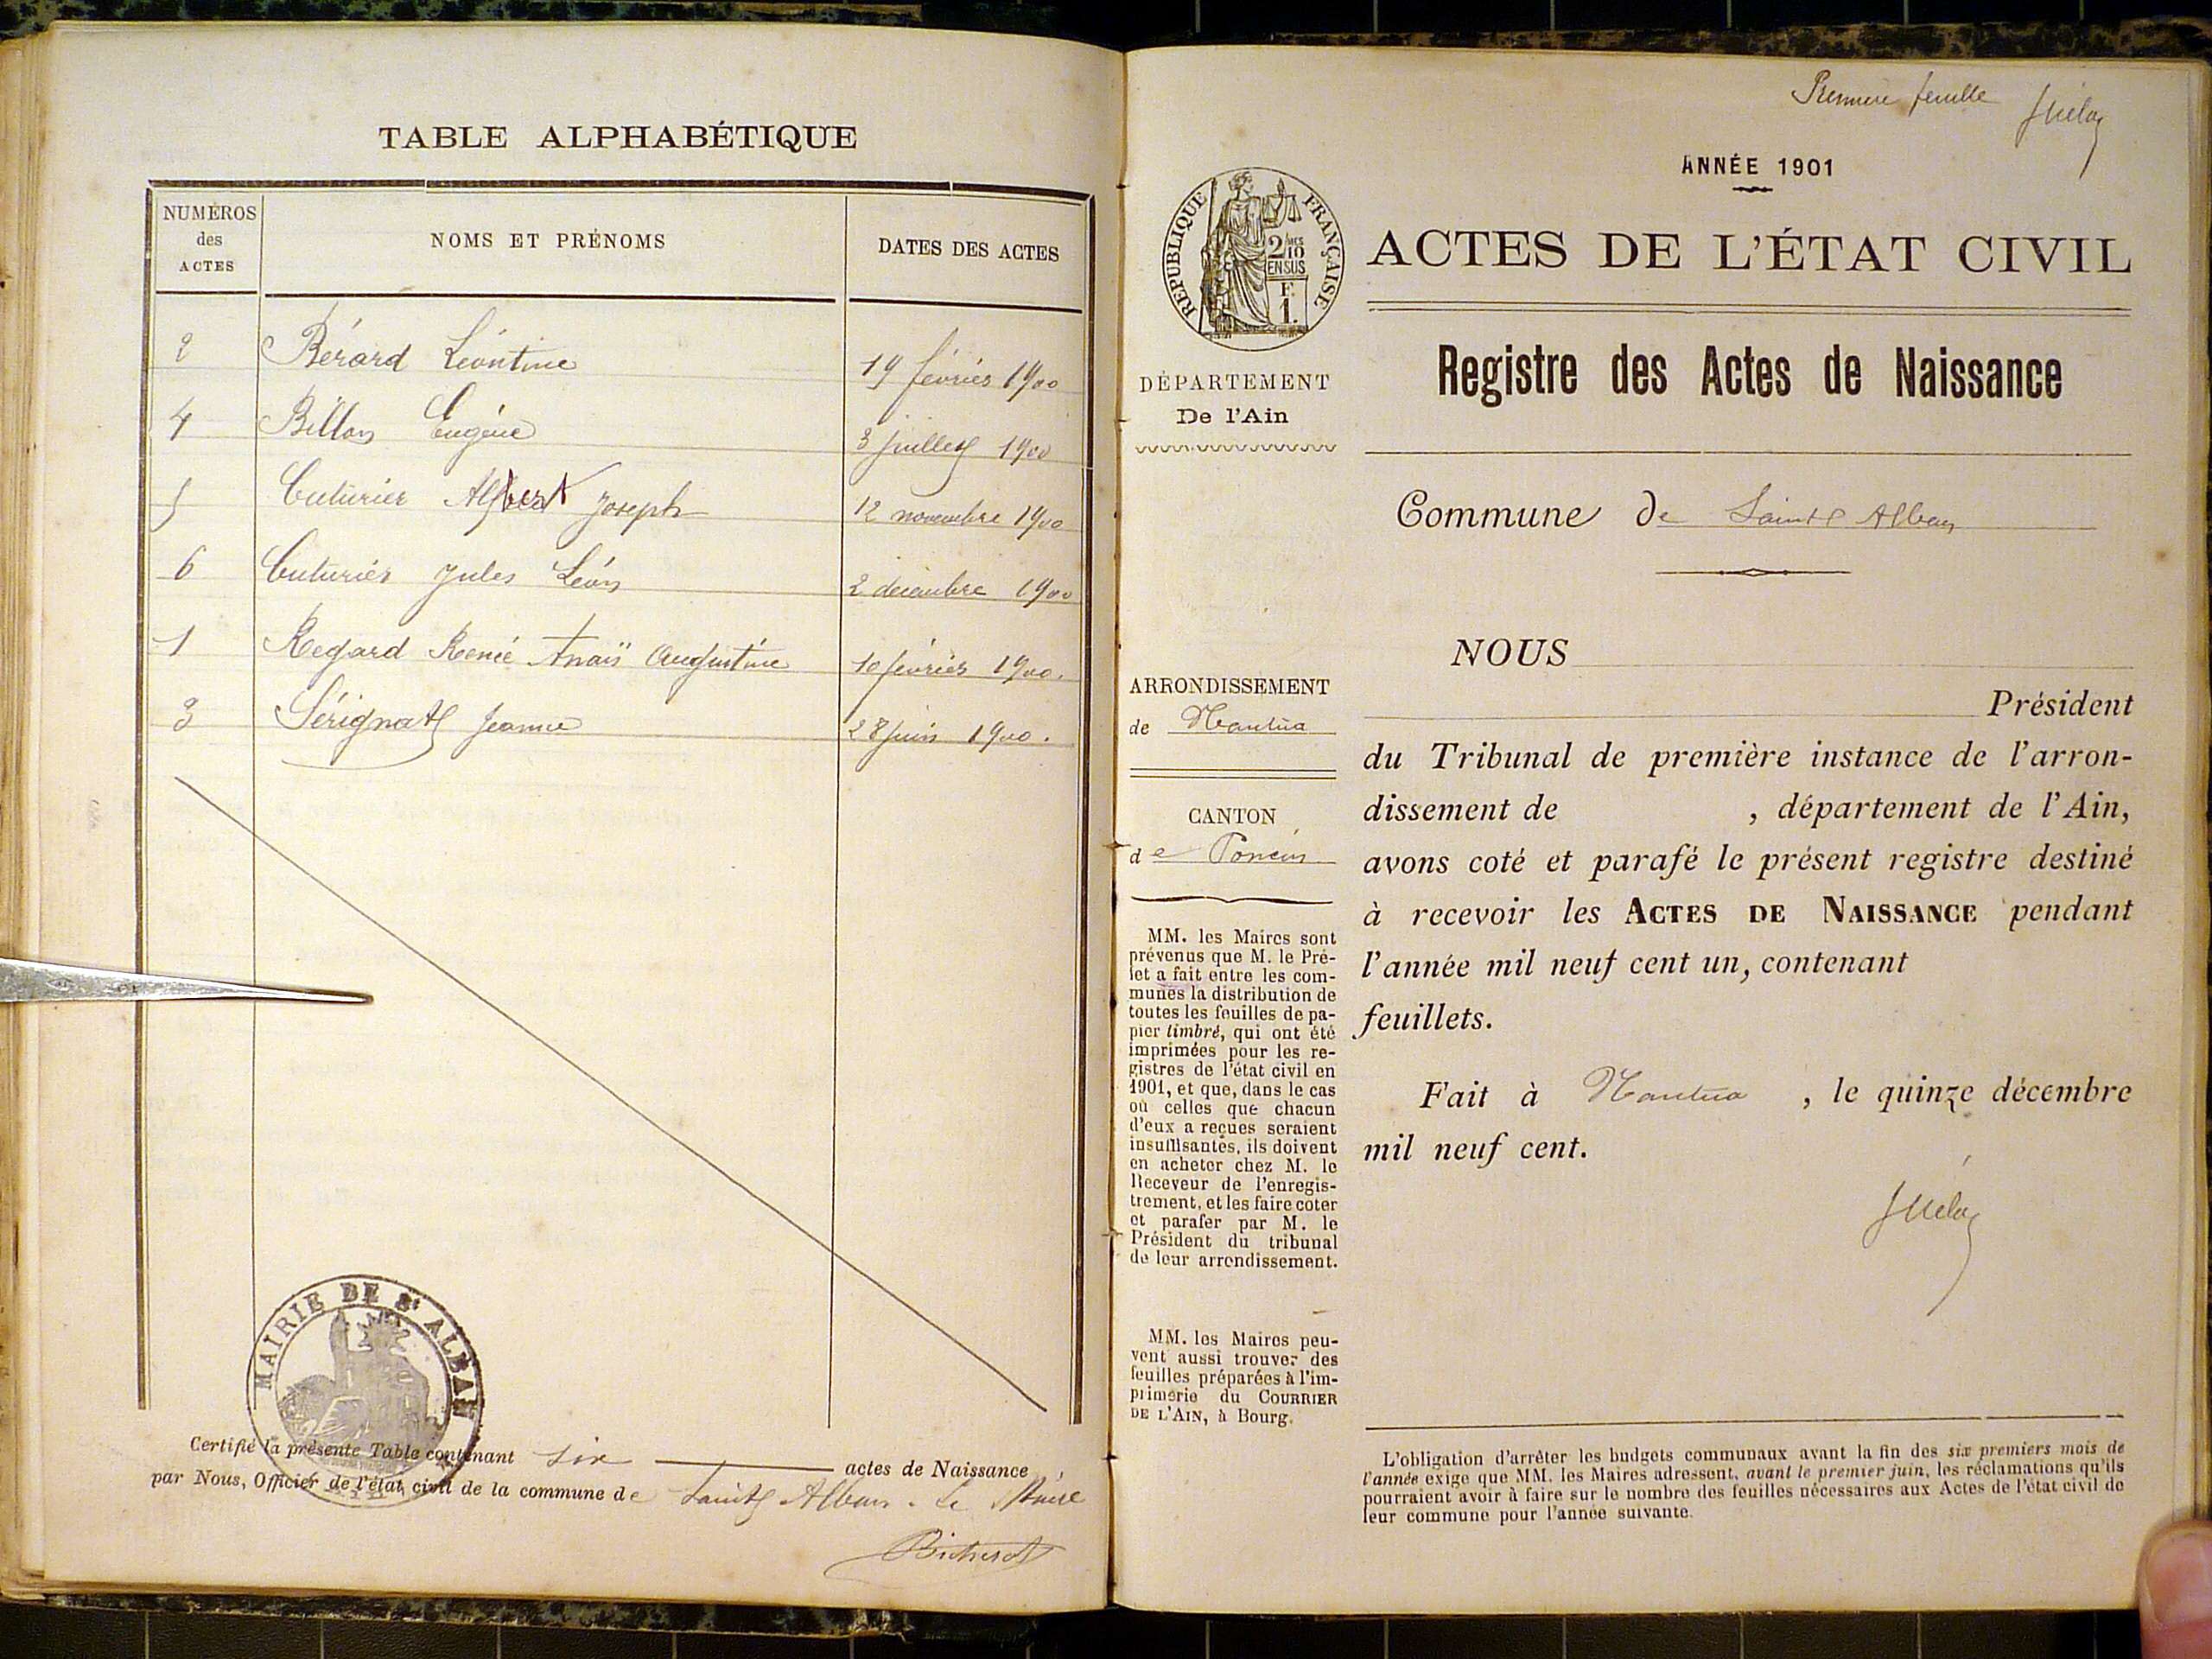 TABLE ALPHABÉTIQUE
NUMÉROS des ACTES NOMS ET PRÉNOMS DATES DES ACTES
2 Bérard Léontine 19 février 1900
4 Billon Eugène 3 juillet 1900
5 Cuturier Albert Joseph 12 novembre 1900
6 Cuturier Jules Léon 2 décembre 1900
1 Regard Renée Anaïs Augustine 10 février 1900.
3 Sérignat Jeanne 28 juin 1900.
MAIRIE DE St ALBAN
Certifié la présente Table contenant six actes de Naissance
par Nous, Officier de l'état civil de la commune de Saint Alban. Le Maire
Première feuille
ANNÉE 1901
RÉPUBLIQUE FRANÇAISE
2/10 EN SUS
F. 1.
ACTES DE L'ÉTAT CIVIL
Registre des Actes de Naissance
DÉPARTEMENT
De l'Ain
Commune de Saint Alban
ARRONDISSEMENT
de Nantua
CANTON
de Poncin
MM. les Maires sont
prévenus que M. le Pré-
fet a fait entre les com-
munes la distribution de
toutes les feuilles de pa-
pier timbré, qui ont été
imprimées pour les re-
gistres de l'état civil en
1901, et que, dans le cas
où celles que chacun
d'eux a reçues seraient
insuffisantes, ils doivent
en acheter chez M. le
Receveur de l'enregis-
trement, et les faire coter
et parafer par M. le
Président du tribunal
de leur arrondissement.
MM. les Maires peu-
vent aussi trouver des
feuilles préparées à l'im-
primerie du COURRIER
DE L'AIN, à Bourg.
NOUS
Président
du Tribunal de première instance de l'arron-
dissement de , département de l'Ain,
avons coté et parafé le présent registre destiné
à recevoir les ACTES DE NAISSANCE pendant
l'année mil neuf cent un, contenant
feuillets.
Fait à Nantua , le quinze décembre
mil neuf cent.
L'obligation d'arrêter les budgets communaux avant la fin des six premiers mois de
l'année exige que MM. les Maires adressent, avant le premier juin, les réclamations qu'ils
pourraient avoir à faire sur le nombre des feuilles nécessaires aux Actes de l'état civil de
leur commune pour l'année suivante.